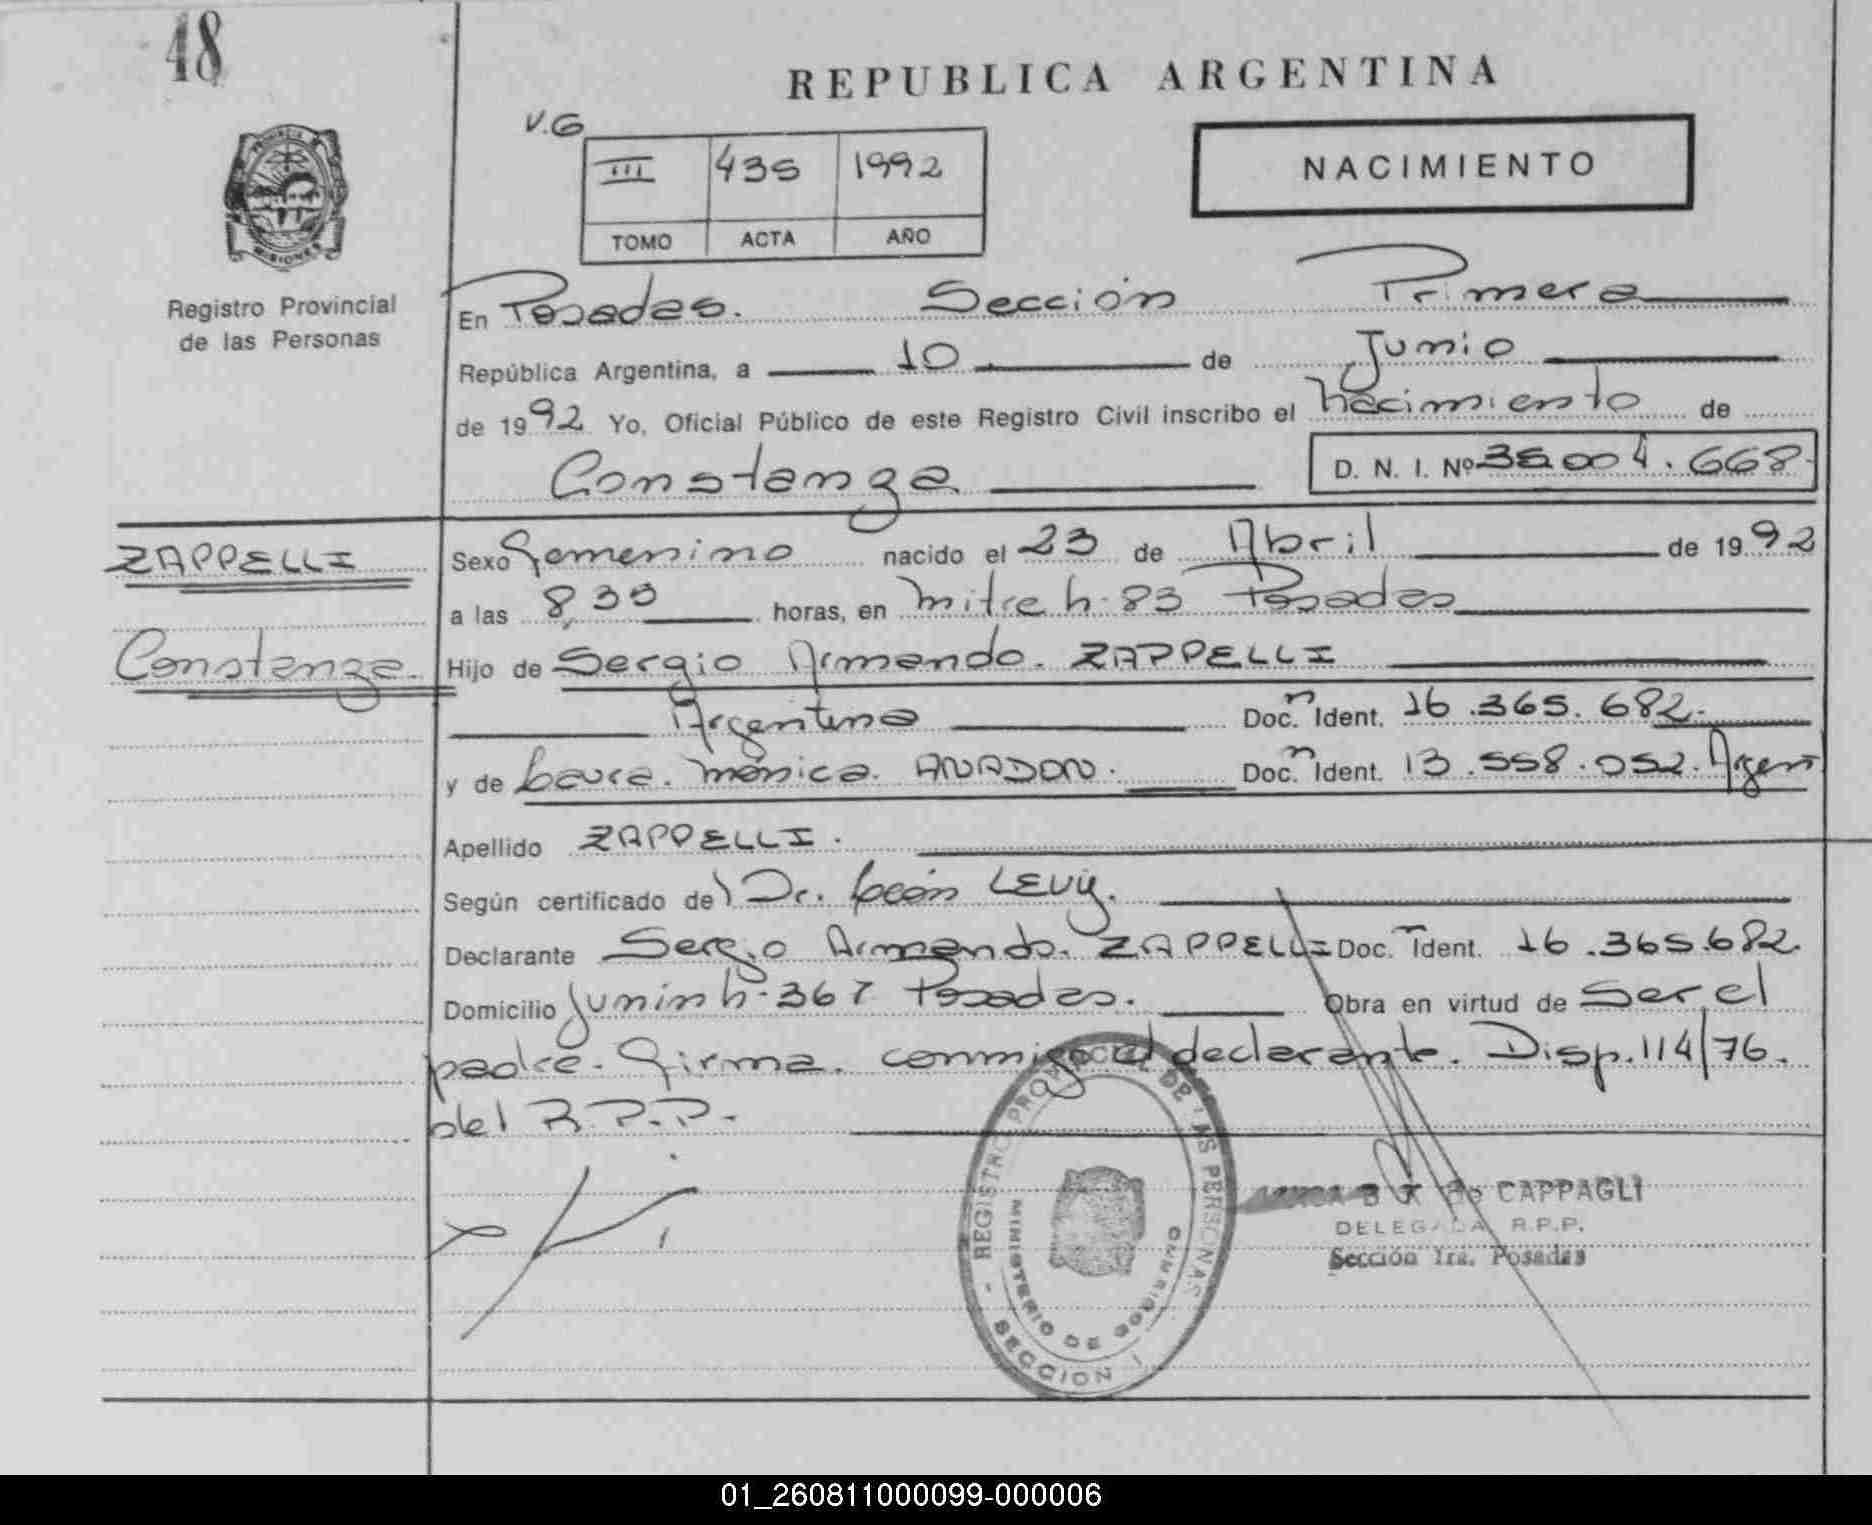 48
REPUBLICA ARGENTINA
V.G
III 435 1992
TOMO ACTA AÑO
NACIMIENTO
PROVINCIA DE MISIONES
Registro Provincial
de las Personas
En Posadas. Sección Primera
República Argentina, a 10 de Junio
de 1992 Yo, Oficial Público de este Registro Civil inscribo el nacimiento de
Constanza D. N. I. Nº 36.004.668
ZAPPELLI
Constanza.
Sexo Femenino nacido el 23 de Abril de 1992
a las 8,30 horas, en Mitre h. 83 Posadas
Hijo de Sergio Armando. ZAPPELLI
Argentino Doc.n Ident. 16.365.682.
y de Laura. Mónica. ANADON. Doc.n Ident. 13.558.052. Argent
Apellido ZAPPELLI.
Según certificado del Dr. León LEVY.
Declarante Sergio Armando. ZAPPELLI Doc. Ident. 16.365.682.
Domicilio Junín h. 367 Posadas. Obra en virtud de Ser el
padre. Firma. conmigo el declarante. Disp. 114/76.
del R.P.P.
- REGISTRO PROVINCIAL DE LAS PERSONAS -
MINISTERIO DE GOBIERNO
SECCION I
CAPPAGLI
DELEGADA R.P.P.
Sección 1ra. Posadas
01_260811000099-000006